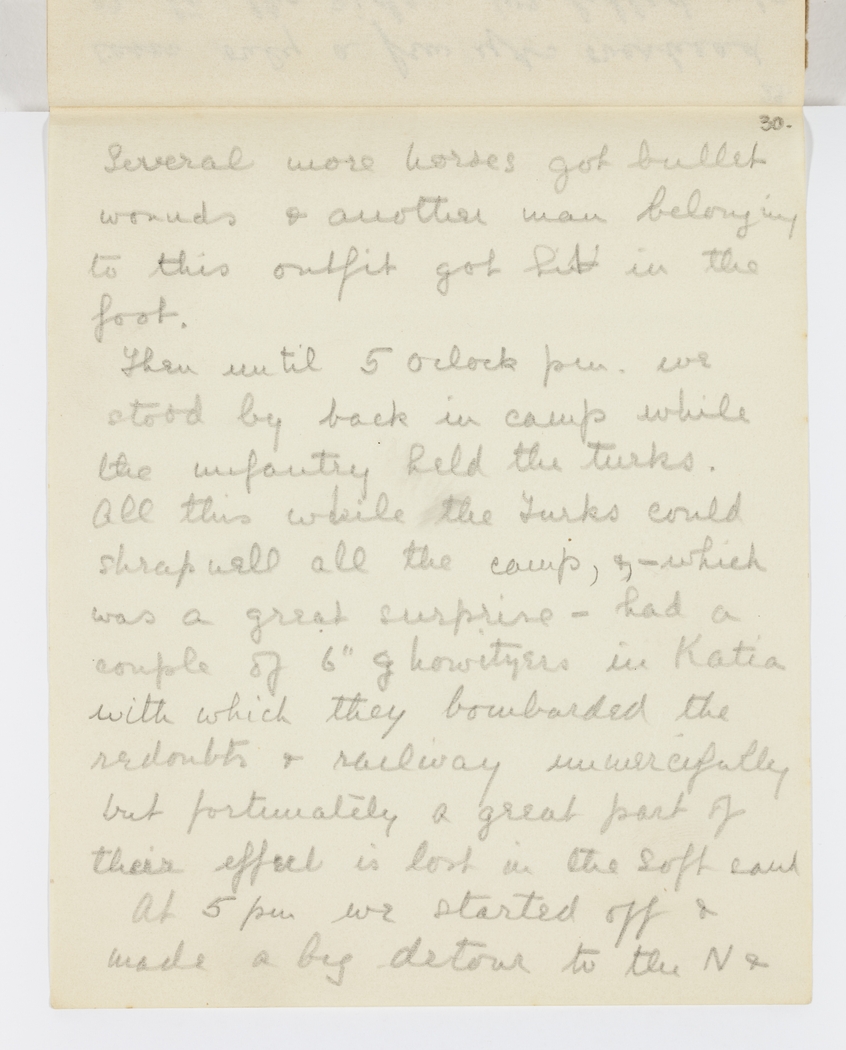 30.
Several more horses got bullet
wounds & another man belonging
to this outfit got hit in the
foot.
Then until 5 oclock pm. we
stood by back in camp while
the infantry held the turks.
All this while the Turks could
shrapnell all the camp, & - which
was a great surprise - had a
couple of 6" howitzers in Katia
with which they bombarded the
redoubts & railway unmercifully
but fortunately a great part of
their effect is lost in the soft sand
At 5 pm we started off &
made a big detour to the N &